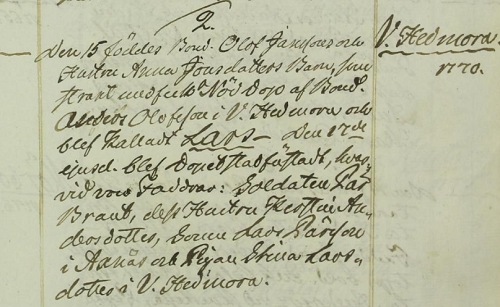 2.
Den 15 föddes Bond. Olof Jansons och
Hustru Anna Jonsdotters Barn, som
strax undfick Nöd Dop af Bond.
Anders Olofsson i V. Hedmora och
blef kalladt Lars. Den 17de
ejusd. blef Dopet stadfästadt, hwar-
vid voro Faddrar: Soldaten Pär
Braut, dess Hustru Kerstin An-
dersdotter, Sonen Lars Pärsson
i Aanäs och Pigan Stina Lars-
dotter i V. Hedmora.
V. Hedmora.
1770.